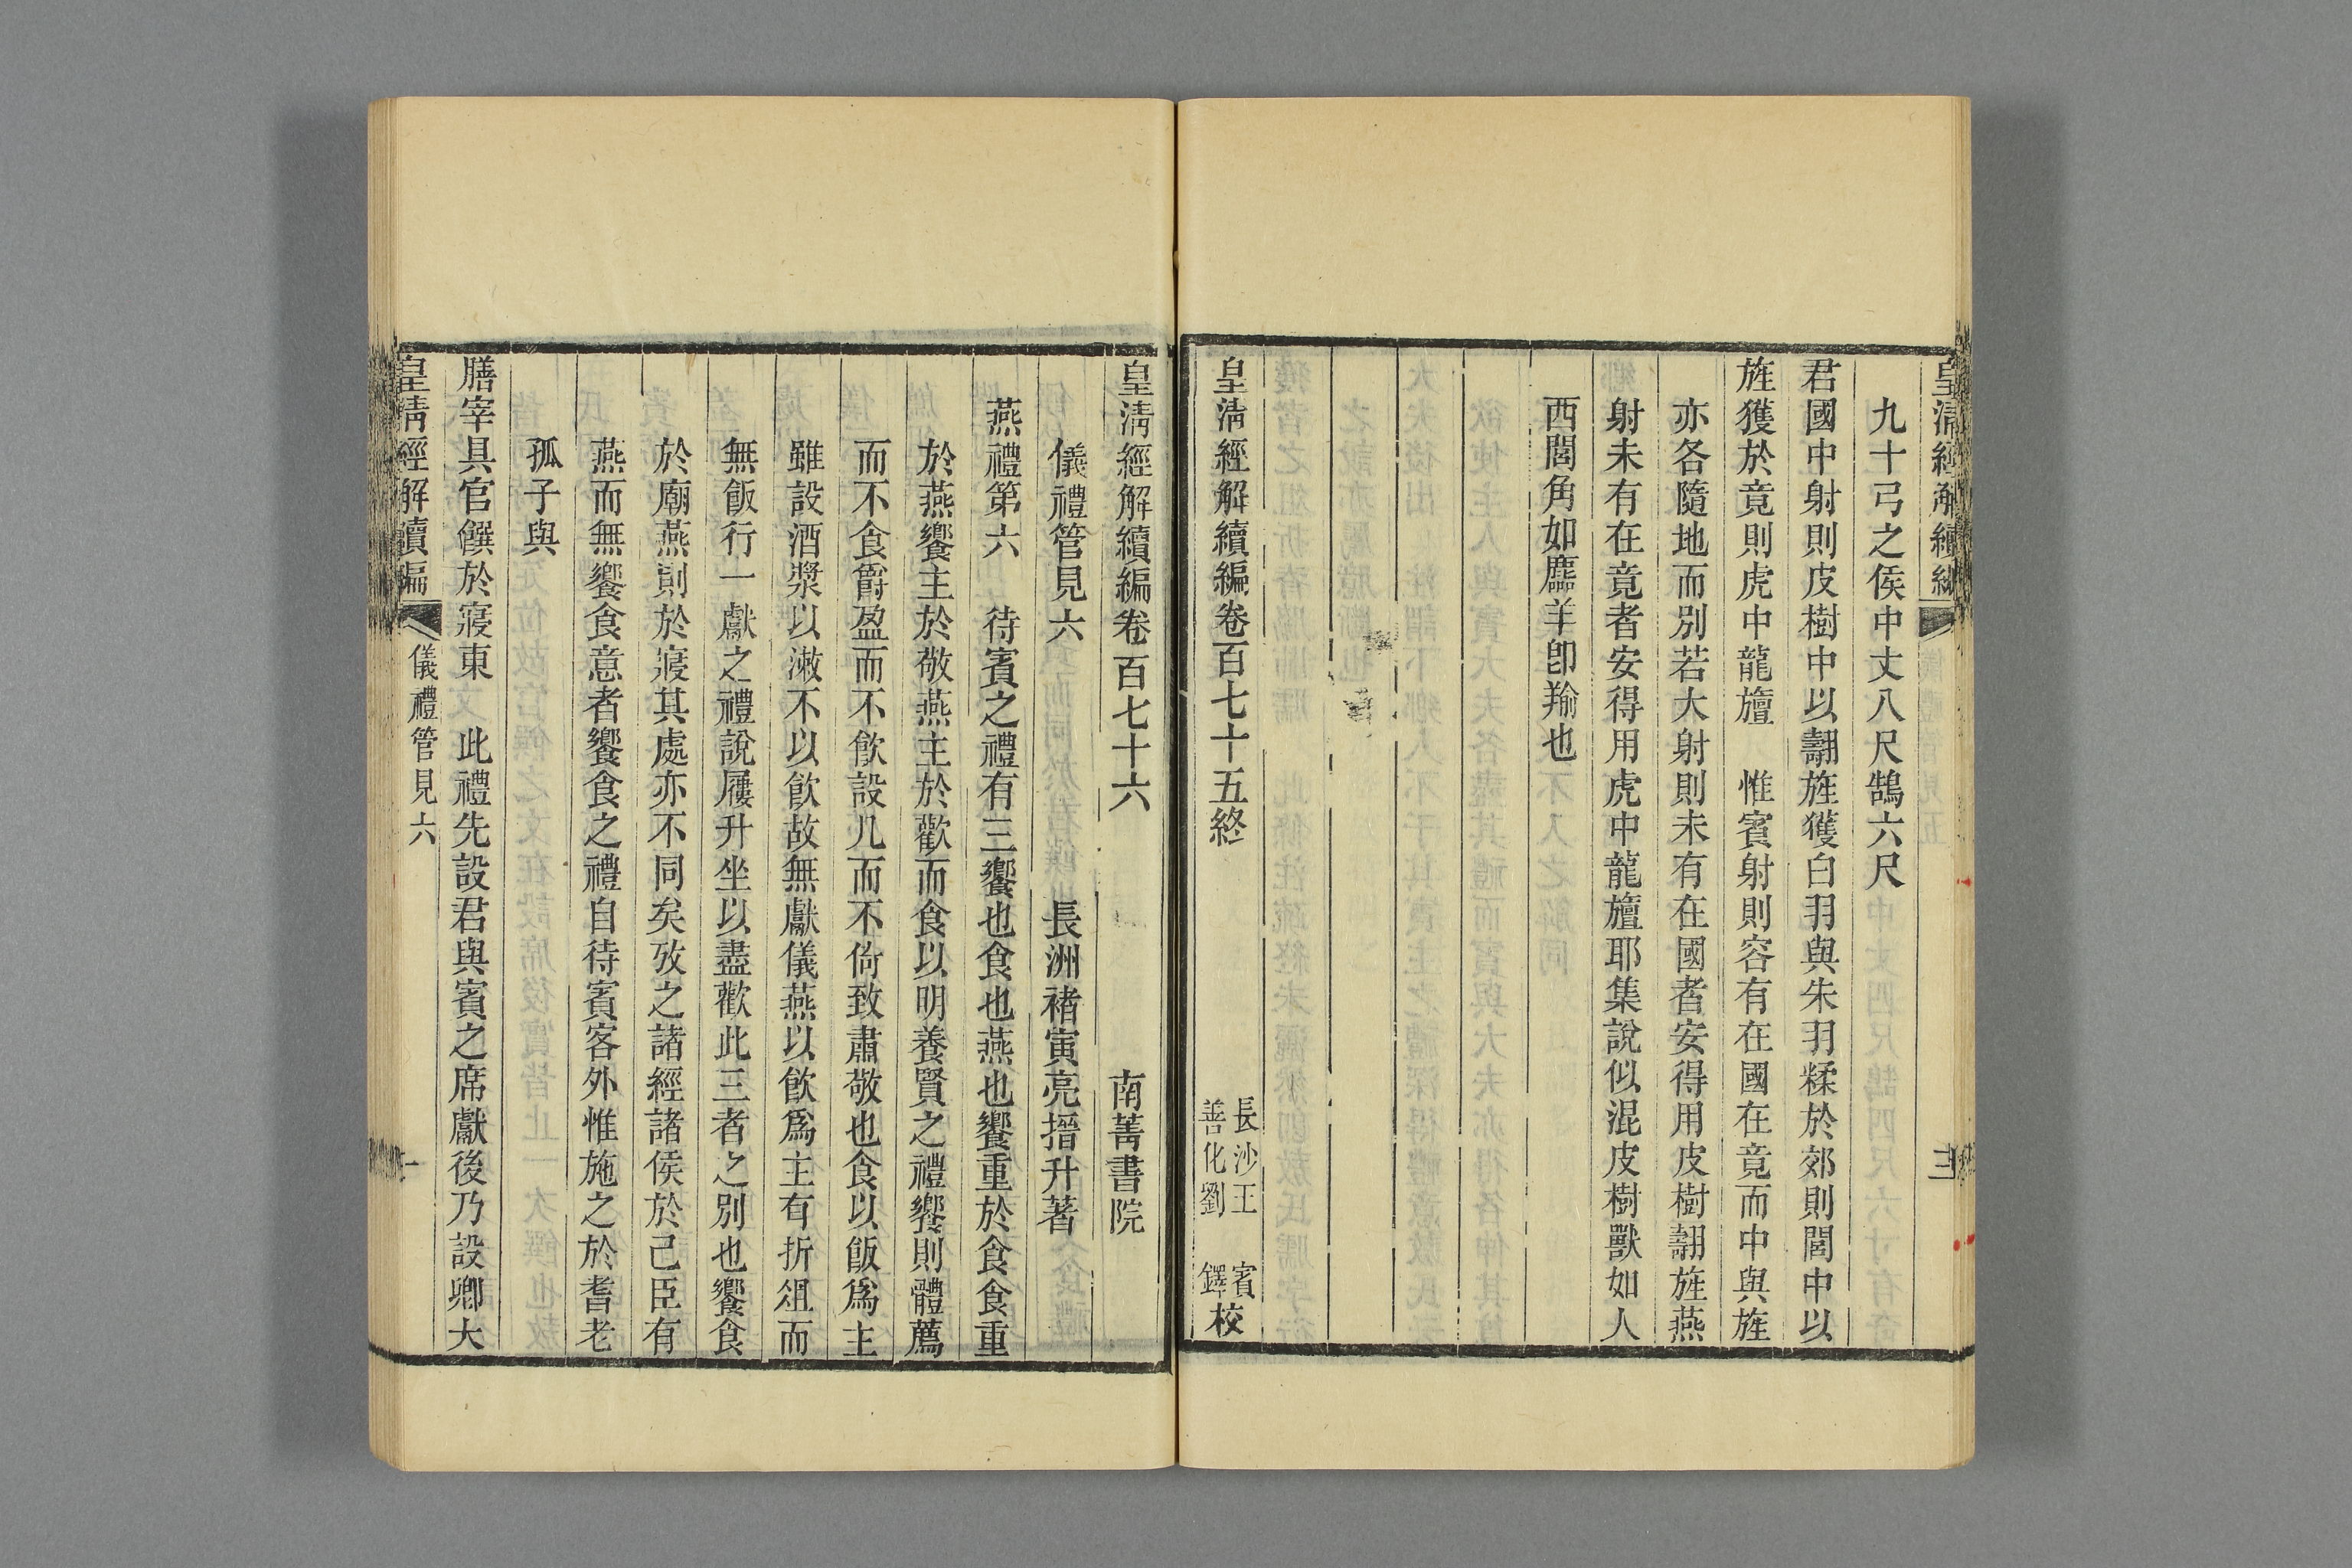 皇清經解續編
九十弓之侯中丈八尺鵠六尺
君國中射則皮樹中以翿旌獲白羽與朱羽糅於郊則閭中以
旌獲於竟則虎中龍旜　惟賓射則容有在國在竟而中與旌
亦各隨地而別若大射則未有在國者安得用皮樹翿旌燕
射未有在竟者安得用虎中龍旜耶集說似混皮樹獸如人
西閭角如麢羊卽羭也
皇清經解續編卷百七十五終
長沙王　賓
善化劉　鐸校
皇清經解續編卷百七十六　南菁書院
儀禮管見六　長洲褚寅亮搢升著
燕禮第六　待賓之禮有三饗也食也燕也饗重於食食重
於燕饗主於敬燕主於歡而食以明養賢之禮饗則體薦
而不食爵盈而不飮設几而不倚致肅敬也食以飯爲主
雖設酒漿以漱不以飮故無獻儀燕以飮爲主有折俎而
無飯行一獻之禮說屨升坐以盡歡此三者之別也饗食
於廟燕則於寢其處亦不同矣攷之諸經諸侯於己臣有
燕而無饗食意者饗食之禮自待賓客外惟施之於耆老
孤子與
膳宰具官饌於寢東　此禮先設君與賓之席獻後乃設卿大
皇清經解續編　儀禮管見六　一